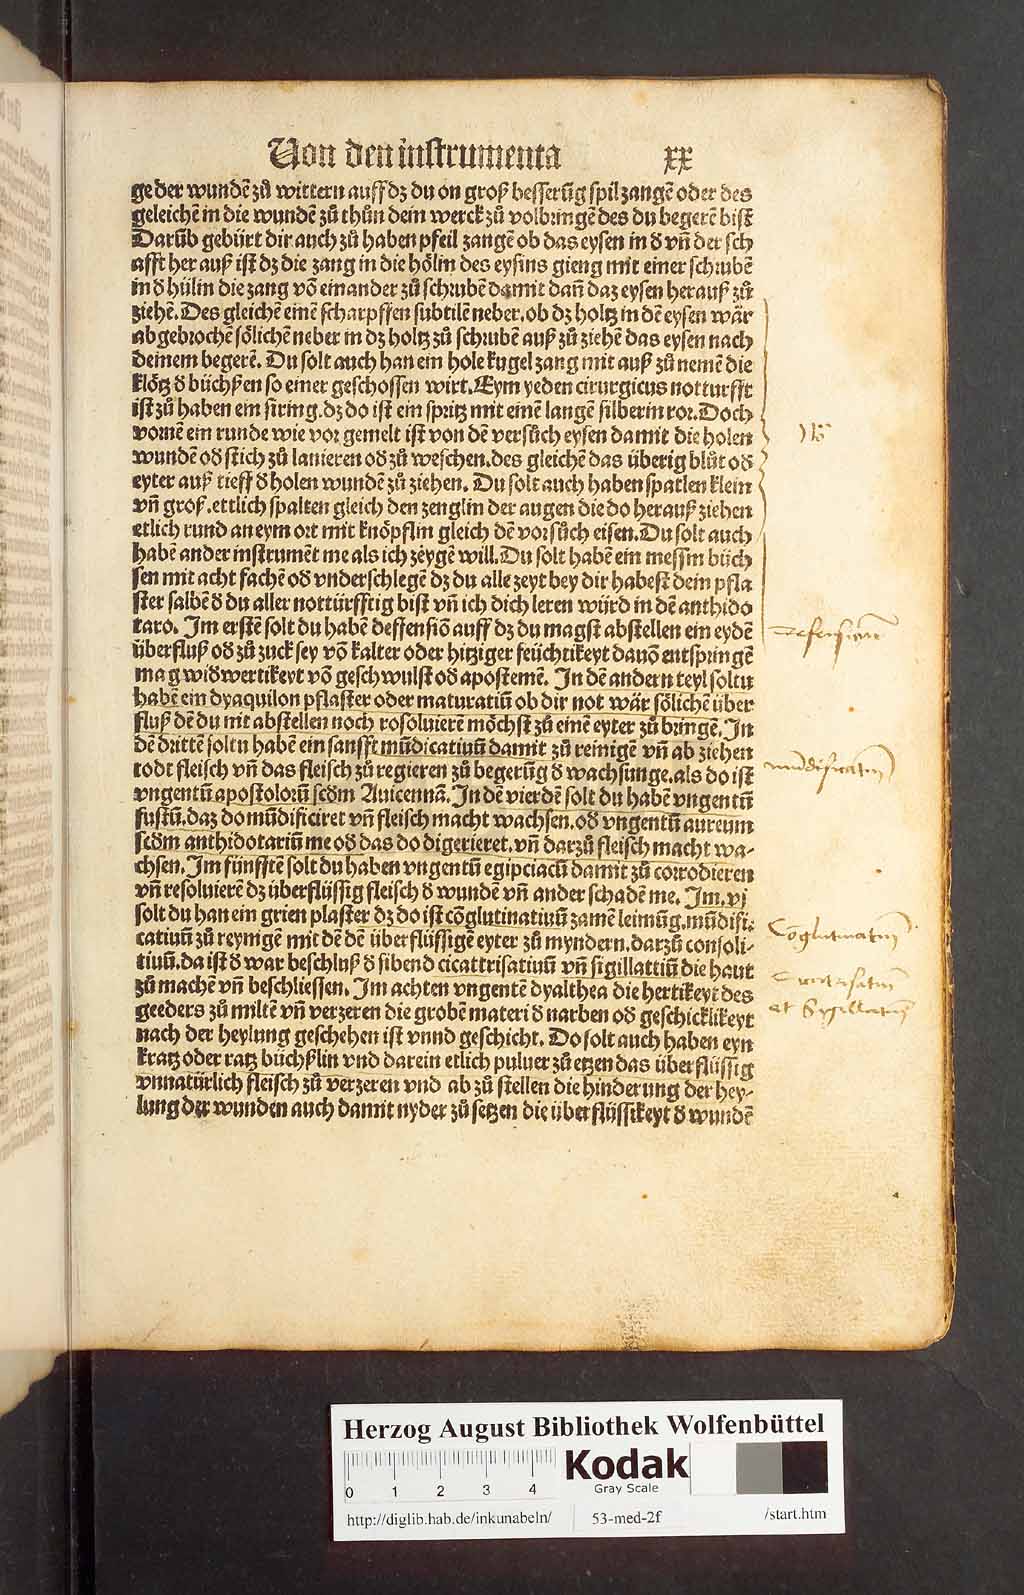 Von den instrumenta xx
ge der wundē zů wittern auff dz du on groß besserūg spil zangē oder des
geleichē in die wundē zů thůn dein werck zů volbringē des du begerē bist
Darūb gebürt dir auch zů haben pfeil zangē ob das eysen in d vñ der sch
afft her auß ist dz die zang in die hölin des eysins gieng mit einer schrubē
in d hülin die zang vō einander zů schrubē damit dañ daz eysen herauß zů
ziehē. Des gleichē einē scharpffen subtilē neber. ob dz holtz in dē eysen wär
abgebrochē sölichē neber in dz holtz zů schrubē auß zů ziehē das eysen nach
deinem begerē. Du solt auch han ein hole kugel zang mit auß zů nemē die
klötz d büchßen so einer geschossen wirt. Eym yeden cirurgicus notturfft
ist zů haben ein siring. dz do ist ein spritz mit einē langē silberin ror. Doch
vornē ein runde wie vor gemelt ist von dē versůch eysen damit die holen
wundē od stich zů lauieren od zů weschen. des gleichē das überig blůt od
eyter auß tieff d holen wundē zů ziehen. Du solt auch haben spatlen klein
vñ groß. ettlich spalten gleich den zenglin der augen die do herauß ziehen
etlich rund an eym ort mit knöpflin gleich dē vorsůch eisen. Du solt auch
habē ander instrumēt me als ich zēygē will. Du solt habē ein messin büch
sen mit acht fachē od vnderschlegē dz du alle zeyt bey dir habest dein pfla
ster salbē d du aller nottürfftig bist vñ ich dich leren würd in dē anthido
taro. Im erstē solt du habē deffensiō auff dz du magst abstellen ein eydē
überfluß od zů zuck sey vō kalter oder hitziger feüchtikeyt dauō entspringē
mag widwertikeyt vō geschwulst od apostemē. In dē andern teyl soltu
habē ein dyaquilon pflaster oder maturatiū ob dir not wär sölichē über
fluß dē du nit abstellen noch rosoluierē möchst zů einē eyter zů bringē. In
dē drittē soltu habē ein sansft mūdicatiuū damit zů reinigē vñ ab ziehen
todt fleisch vñ das fleisch zů regieren zů begerūg d wachsunge. als do ist
vngentū apostolorū scdm Auicennā. In dē vierdē solt du habē vngentū
fustū. daz do mūdificiret vñ fleisch macht wachsen. od vngentū aureum
scdm anthidotariū me od das do digerieret. vñ darzů fleisch macht wa-
chsen. Im fünfftē solt du haben vngentū egipciacū damit zů corrodieren
vñ resoluierē dz überflüssig fleisch d wundē vñ ander schadē me. Im. vi
solt du han ein grien plaster dz do ist cōglutinatiuū zamē leimūg. mūdifi-
catiuū zů reymgē mit dē dē überflüssigē eyter zů myndern. darzů consoli-
tiuū. da ist d war beschluß d sibend cicattrisatiuū vñ sigillattiū die haut
zů machē vñ beschliessen. Im achten vngentē dyalthea die hertikeyt des
geeders zů miltē vñ verzeren die grobē materi d narben od geschicklikeyt
nach der heylung geschehen ist vnnd geschicht. Do solt auch haben eyn
kratz oder ratz büchßlin vnd darein etlich puluer zů etzen das überflüssig
vnnatürlich fleisch zů verzeren vnd ab zů stellen die hinderung der hey-
lung der wunden auch damit nyder zů setzen die überflüssikeyt d wundē
defensiuum
mūdificatiuū
Cōglutinatiuū
Cicatrisatiuū
et Sygillatiuū
Herzog August Bibliothek Wolfenbüttel
Kodak
Gray Scale
0 1 2 3 4
http://diglib.hab.de/inkunabeln/ 53-med-2f /start.htm